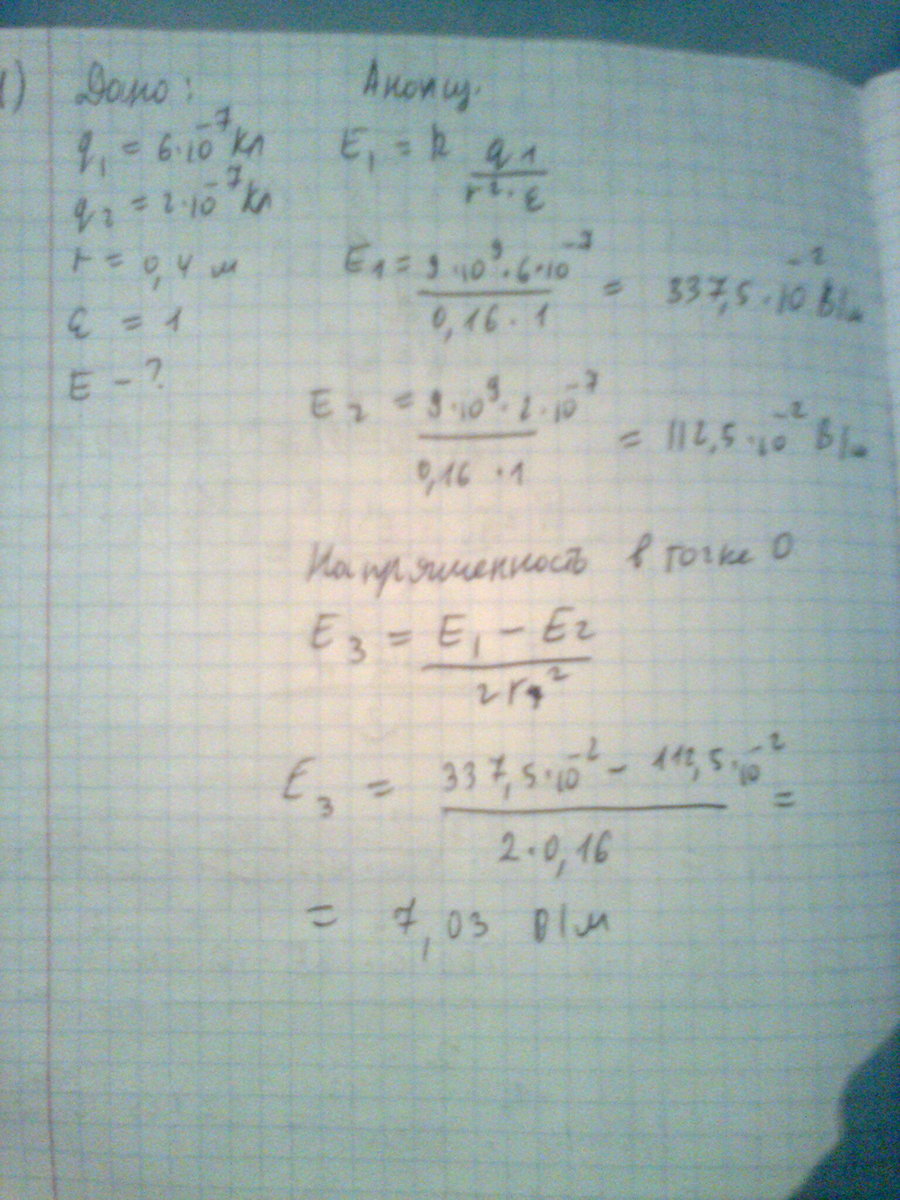 1) Дано:
q₁ = 6·10⁻⁷ Кл
q₂ = 2·10⁻⁷ Кл
r = 0,4 м
ε = 1
E - ?
E₁ = k q1 / r²·ε
E₁ = 9·10⁹·6·10⁻⁷ / 0,16·1 = 337,5·10⁻² В/м
E₂ = 9·10⁹·2·10⁻⁷ / 0,16·1 = 112,5·10⁻² В/м
Напряженность в точке О
E₃ = E₁ - E₂ / 2r²
E₃ = 337,5·10⁻² - 112,5·10⁻² / 2·0,16 =
= 7,03 В/м